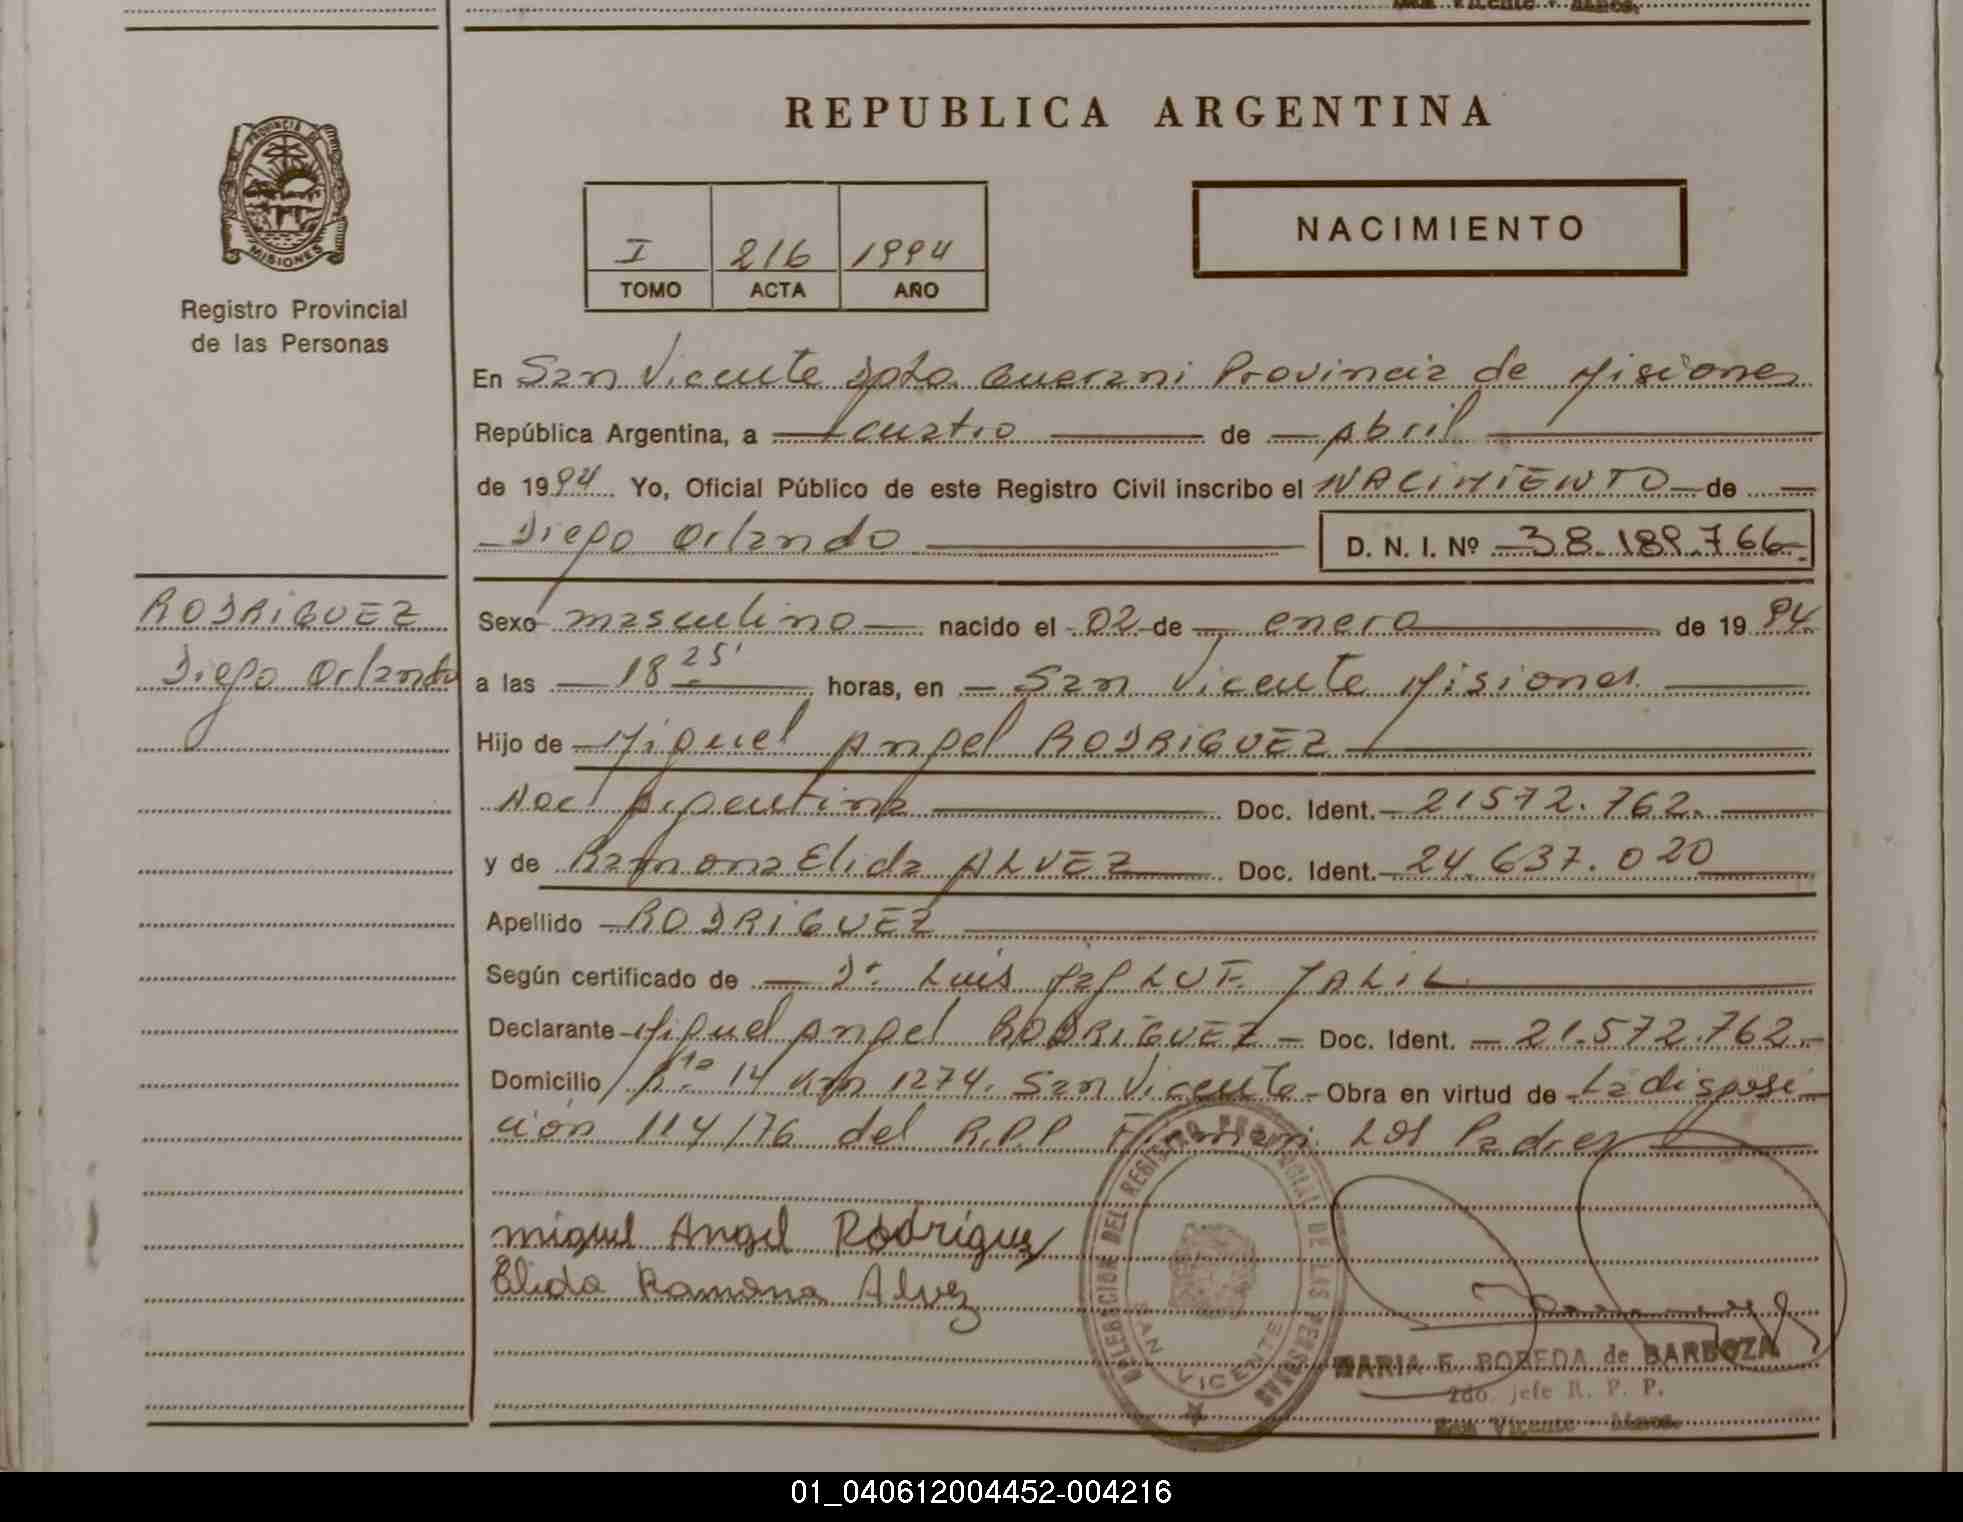 San Vicente - Mnes.
REPUBLICA ARGENTINA
PROVINCIA DE
MISIONES
Registro Provincial
de las Personas
I 216 1994
TOMO ACTA AÑO
NACIMIENTO
En San Vicente Dpto. Guarani Provincia de Misiones
República Argentina, a cuatro de Abril
de 1994 Yo, Oficial Público de este Registro Civil inscribo el NACIMIENTO de
Diego Orlando D. N. I. Nº 38.189.766
RODRIGUEZ
Diego Orlando
Sexo masculino nacido el 02 de enero de 1994
a las 18 25' horas, en San Vicente Misiones
Hijo de Miguel Angel RODRIGUEZ
Nac Argentina Doc. Ident. 21572.762.
y de Ramona Elida ALVEZ Doc. Ident. 24.637.020
Apellido RODRIGUEZ
Según certificado de Dr. Luis JALIL
Declarante Miguel Angel RODRIGUEZ Doc. Ident. 21.572.762.
Domicilio Rta 14 Km 1274. San Vicente Obra en virtud de La disposi
ción 114/76 del R.P.P Firman: Los Padres
miguel Angel Rodriguez
Elida Ramona Alvez
DELEGACION DEL REGISTRO PROVINCIAL DE LAS PERSONAS
SAN VICENTE
MARIA E. POREDA de BARBOZA
2do. Jefe R. P. P.
San Vicente - Mnes.
01_040612004452-004216